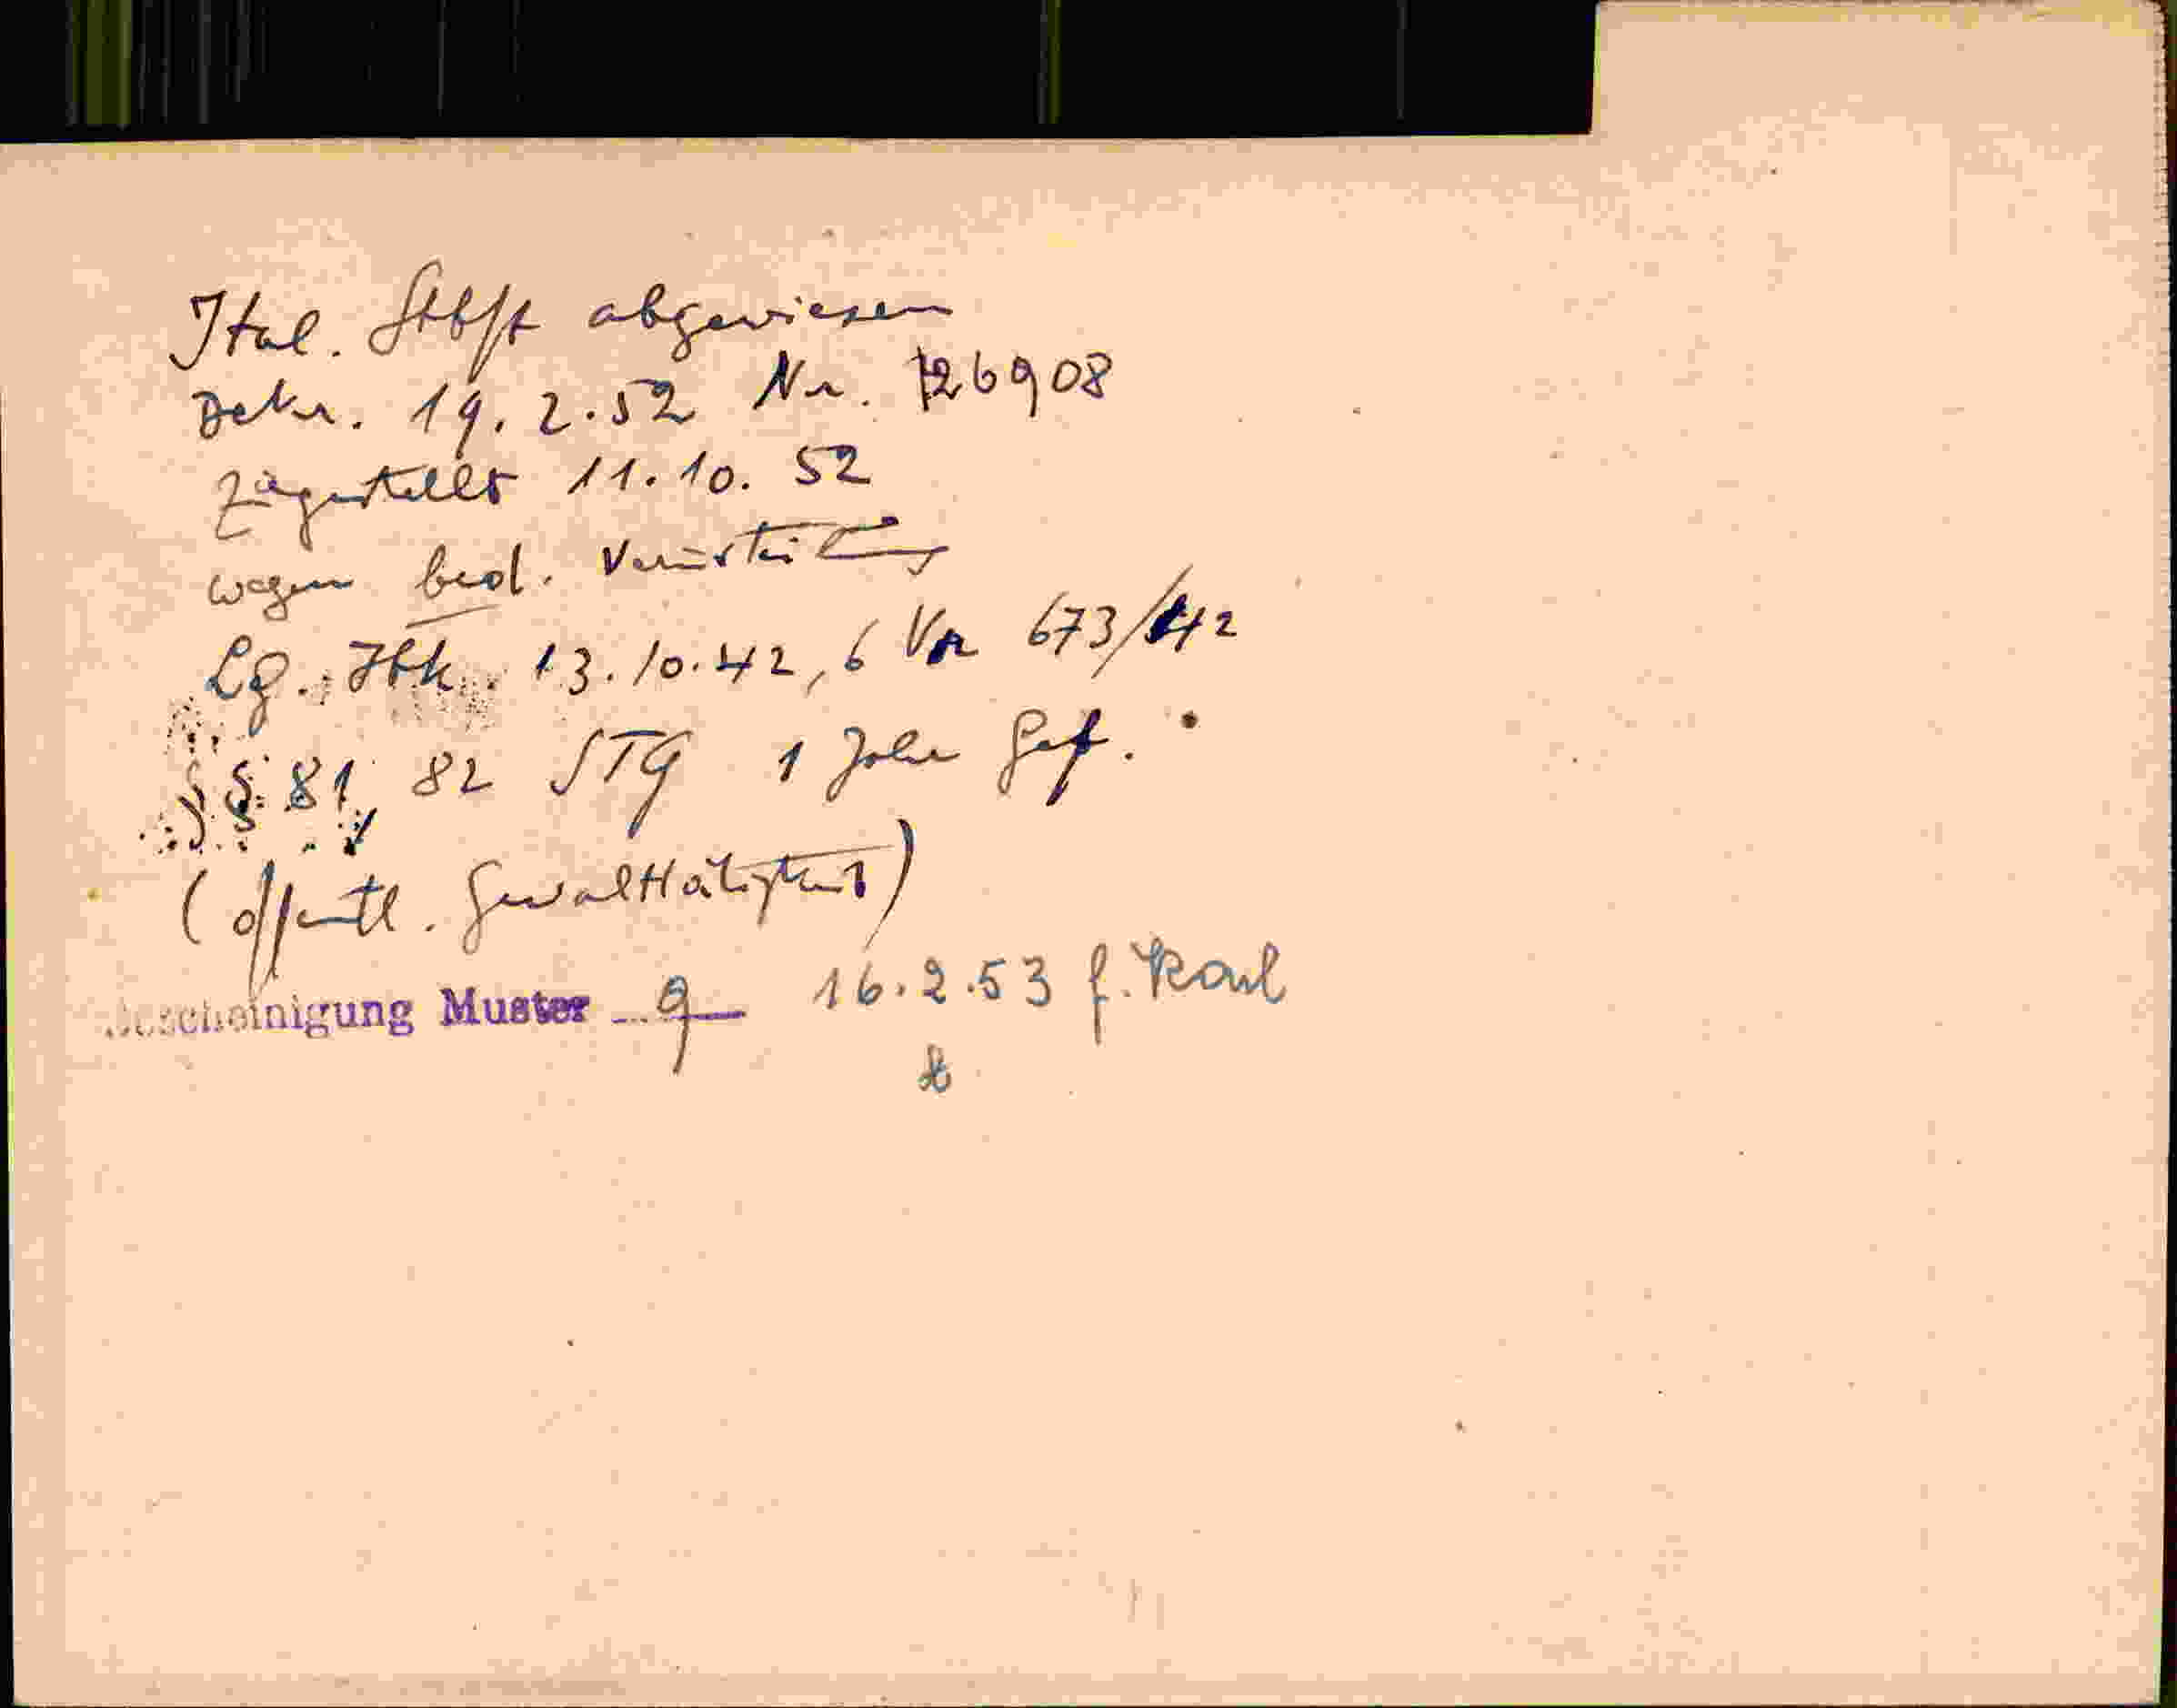 Ital. Stbft abgewiesen
Dekr. 19. 2. 52 Nr. 126908
zugestellt 11. 10. 52
wegen bed. Verurteilung
Lg. Ibk. 13. 10. 42, 6 Vr 673/42
§§ 81, 82 STG 1 Jahr Gef.
(öffentl. Gewalttätigkeit)
Bescheinigung Muster 9 16. 2. 53 f. Karl